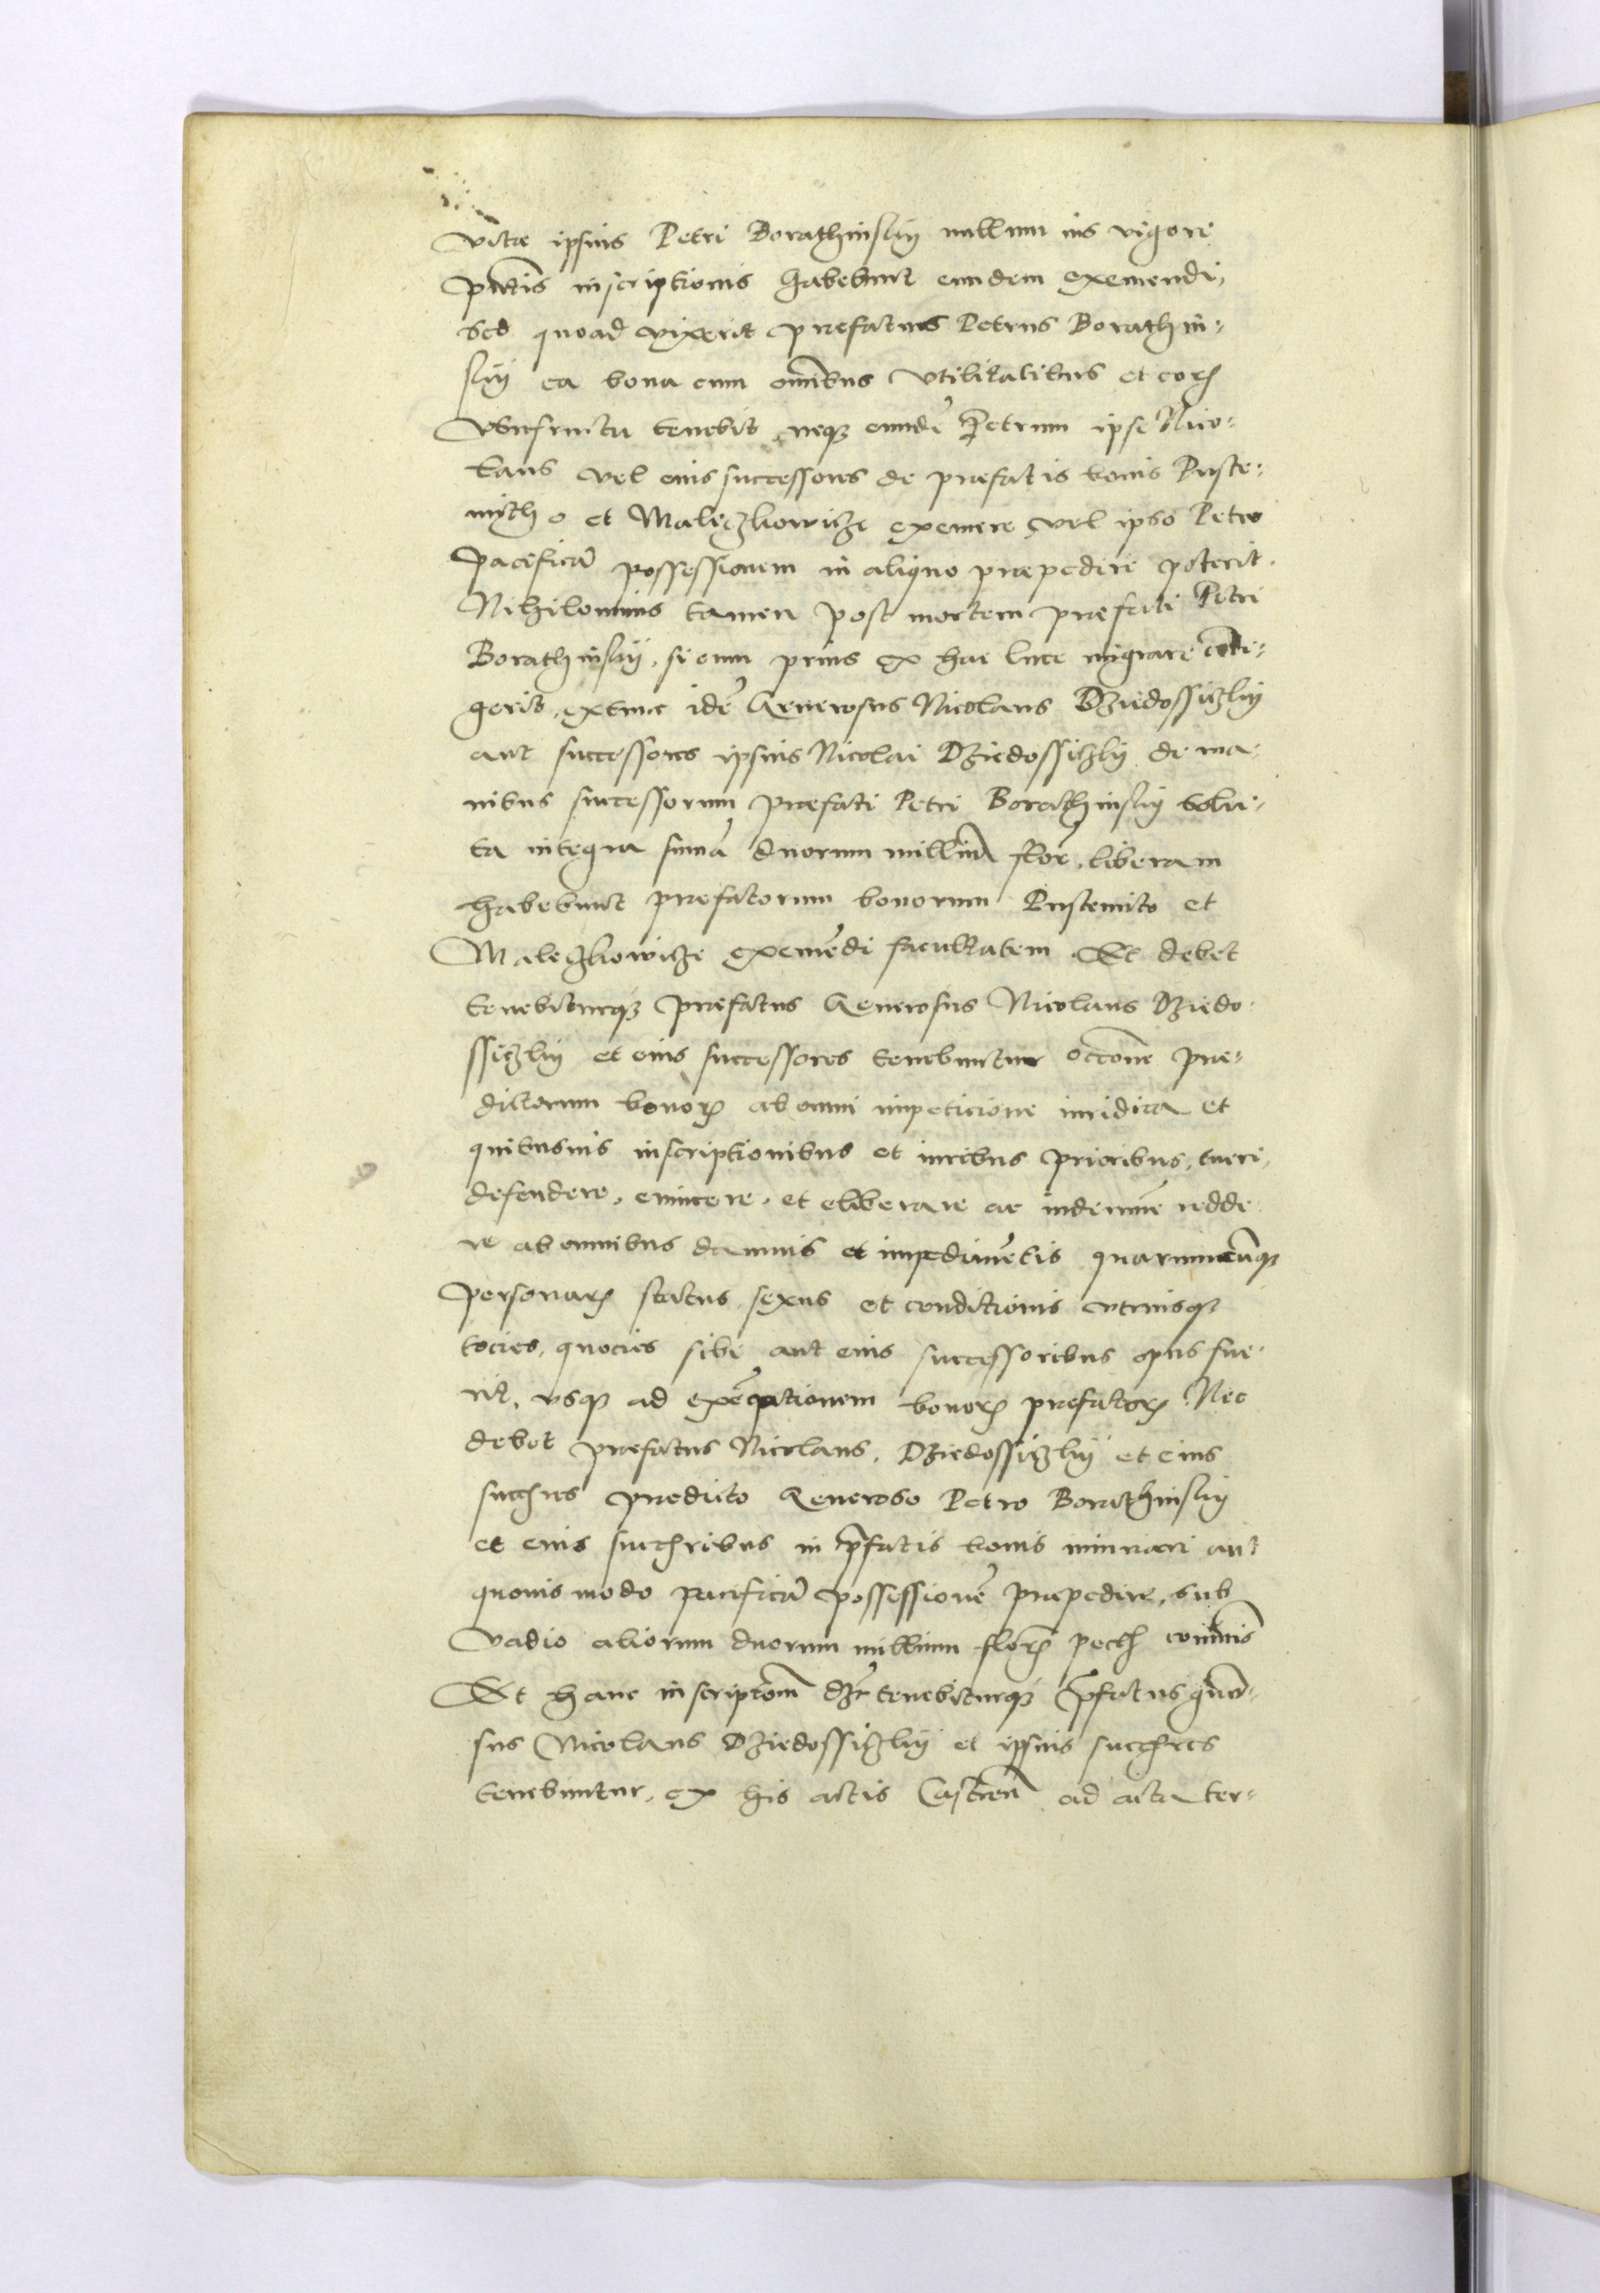 vitae ipsius Petri Borathinskÿ nullum ius vigore
pntis inscriptionis habebunt eundem exemendi,
Sed quoad vixerit prefatus Petrus Borathin-
skÿ ea bona cum omibus vtilitatibus et eorz
vsufructu tenebit, neqz eunde Petrum ipse Nico-
laus vel eius successores de prefatis bonis Puste-
mytho et Maleczkowicze exemere vel ipso Petro
pacifica possessionem in aliquo praepedire poterit.
Nihilominus tamen post mortem praefati Petri
Borathinskÿ, si eum prius ex hac luce migrare conti-
gerit, extunc ide Generosus Nicolaus Dziedossiczkÿ
aut successores ipsius Nicolai Dziedossiczkÿ de ma-
nibus successorum praefati Petri Borathinskÿ solu-
ta integra suma duorum millium flor, liberam
habebunt prefatorum bonorum Pustemito et
Maleczkowicze exemedi facultatem Et debet
tenebiturqz praefatus Generosus Nicolaus Dziedo-
ssiczkÿ et eius successores tenebuntur occone prae-
dictorum bonorz ab omni impeticione iuridica et
quibusuis inscriptionibus et iuribus prioribus, tueri,
defendere, euincere, et eliberare ac indemne redde
re ab omnibus damnis et impedimetis quarumcuqz
personarz status, sexus et conditionis vtriusqz
tocies, quocies sibi aut eius successoribus opus fue-
rit, vsqz ad exeptionem bonorz prefatorz Nec
debet praefatus Nicolaus, Dziedossiczkÿ et eius
succhres predicto Generoso Petro Borathinskÿ
et eius succhribus in pfatis bonis iniuriari aut
quouis modo pacifica possessione praepedire, sub
vadio aliorum duorum millium florz pecch communis
Et hanc inscripcom dzr tenebiturqz pfatus gnro-
sus Nicolaus Dziedossiczkÿ et ipsius succhres
tenebuntur, ex his actis Castren ad acta ter-